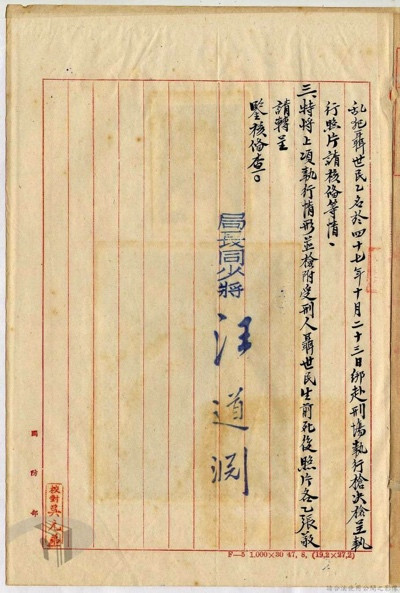 乱犯聶世民乙名於四十七年十月二十三日綁赴刑場執行槍决檢呈執
行照片請核俻等情、
三、特將上項執行情形並檢附受刑人聶世民生前死後照片各乙張敬
請轉呈
鑒核俻查。
局長同少將汪道渊
國防部
校對吳元
F—5 1,000×30 47. 8. (19.2×27.2)